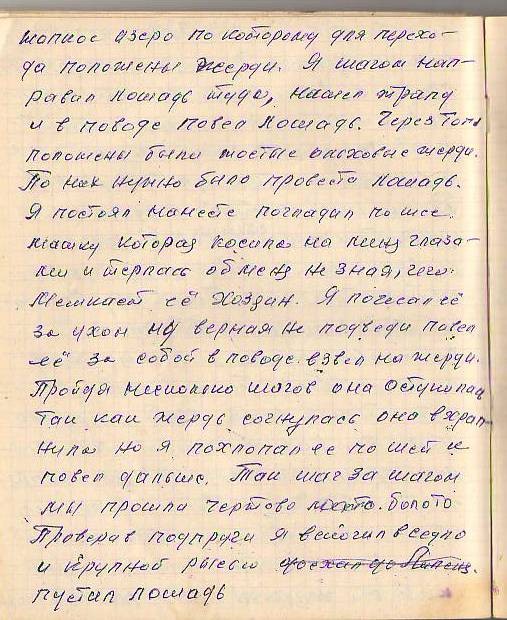 топкое озеро по которому для перехо-
да положены жерди. Я шагом нап-
равил лошадь туда, нашел тропу
и в поводе повел лошадь. Через топь
положены были толстые ольховые жерди.
По них нужно было провести лошадь.
Я постоял на месте погладил по шее
машку которая косила на меня глаза-
ми и терлась об меня не зная, чего
мешкает её хозяин. Я почесал её
за ухом ну верная не подведи повел
её за собой в поводе. взвел на жерди.
Пройдя несколько шагов она оступилась
так как жердь согнулась она всхрап-
нула но я похлопал ее по шее и
повел дальше. Так шаг за шагом
мы прошли чертово место. болото
Проверив подпруги я вскочил в седло
и крупной рысью
пустил лошадь